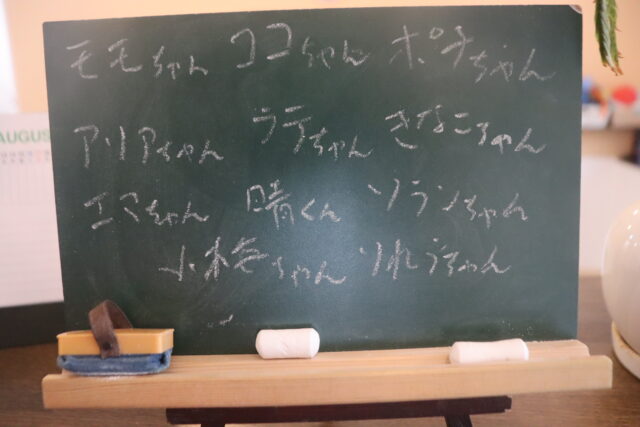 AUGUS
モモちゃん ココちゃん ポチちゃん
アリアちゃん ラテちゃん きなこちゃん
エマちゃん 晴くん ソランちゃん
小梅ちゃん ちゃん